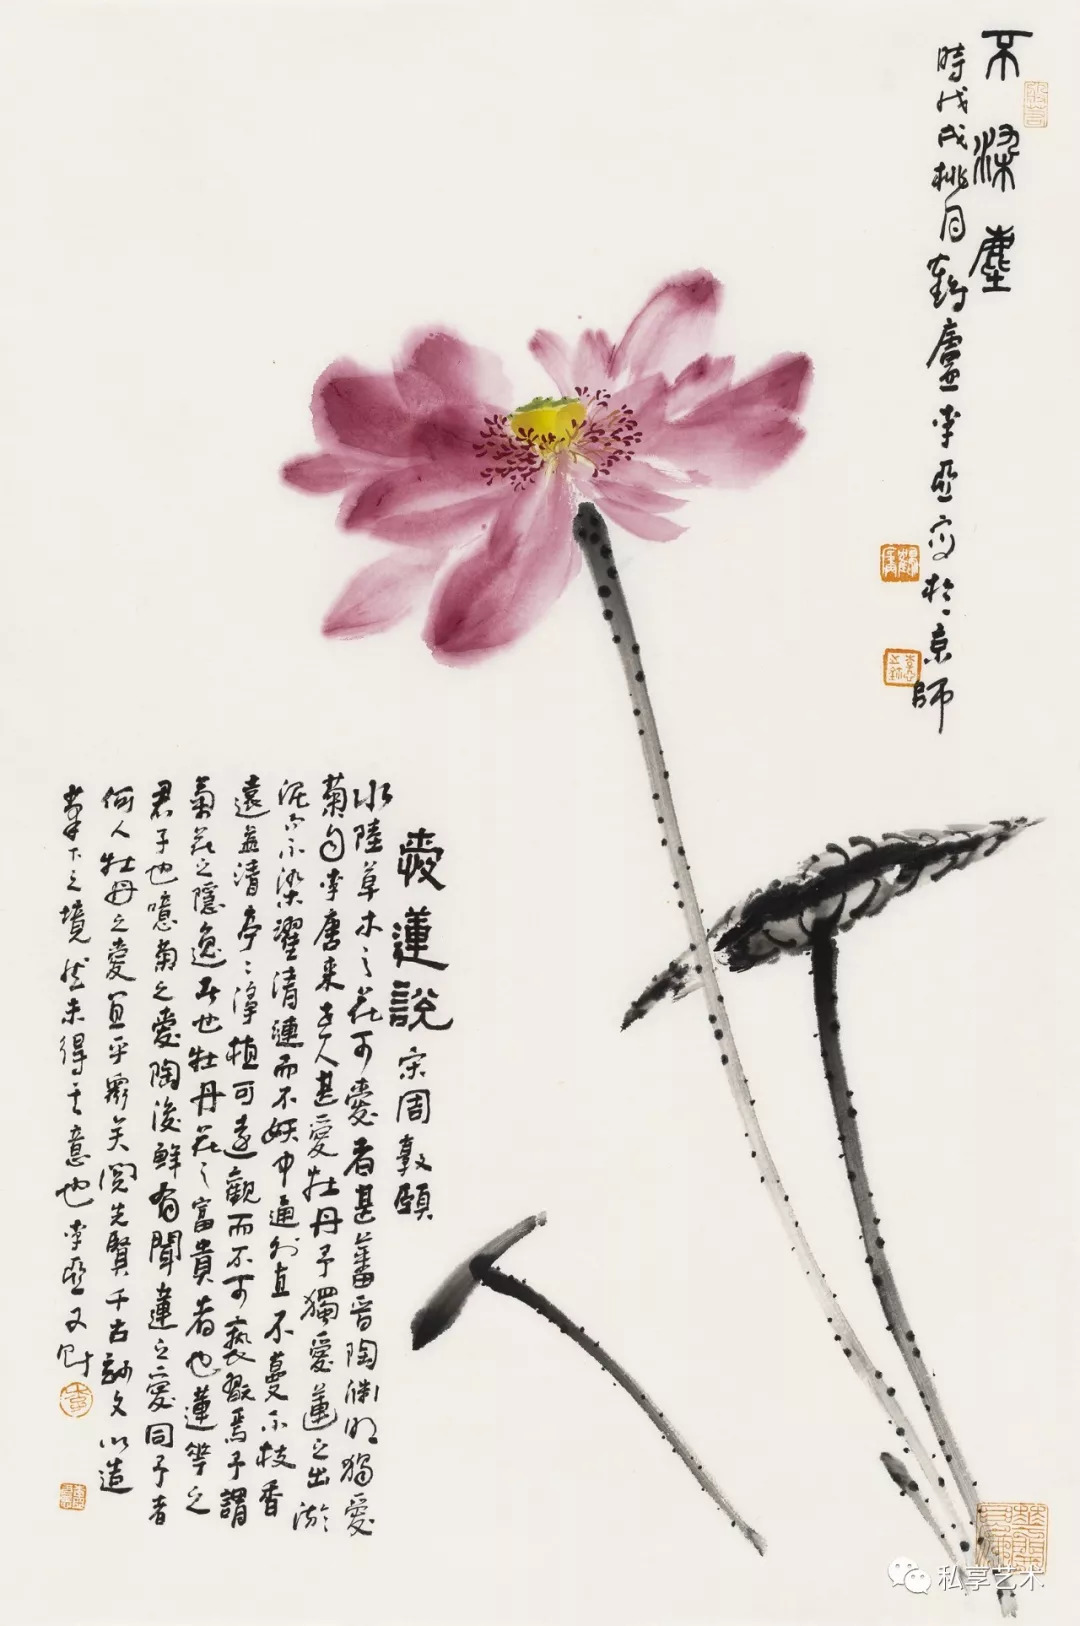 不染塵
時戊戌桃月鶴廬李亞寫於京師
愛蓮説 宋周敦頤
水陸草木之花可愛者甚蕃晉陶渊明獨愛
菊自李唐來世人甚愛牡丹予獨愛蓮之出淤
泥而不染濯清漣而不妖中通外直不蔓不枝香
遠益清亭〻淨植可遠觀而不可褻翫焉予謂
菊花之隱逸者也牡丹花之富貴者也蓮華之
君子也噫菊之愛陶後鮮有聞蓮之愛同予者
何人牡丹之愛宜乎衆矣閱先賢千古詩文以造
筆下之境然未得其意也李亞又
私享艺术